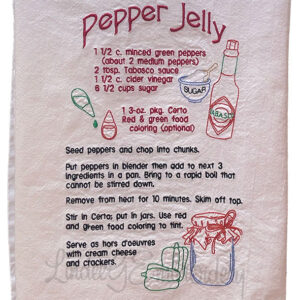 Pepper Jelly
1 1/2 c. minced green peppers
(about 2 medium peppers)
2 tbsp. Tabasco sauce
1 1/2 c. cider vinegar
6 1/2 cups sugar
SUGAR
TABASCO
1 3-oz. pkg. Certo
Red & green food
coloring (optional)
Seed peppers and chop into chunks.
Put peppers in blender then add to next 3
ingredients in a pan. Bring to a rapid boil that
cannot be stirred down.
Remove from heat for 10 minutes. Skim off top.
Stir in Certo; put in jars. Use red
and green food coloring to tint.
Serve as hors d'oeuvres
with cream cheese
and crackers.